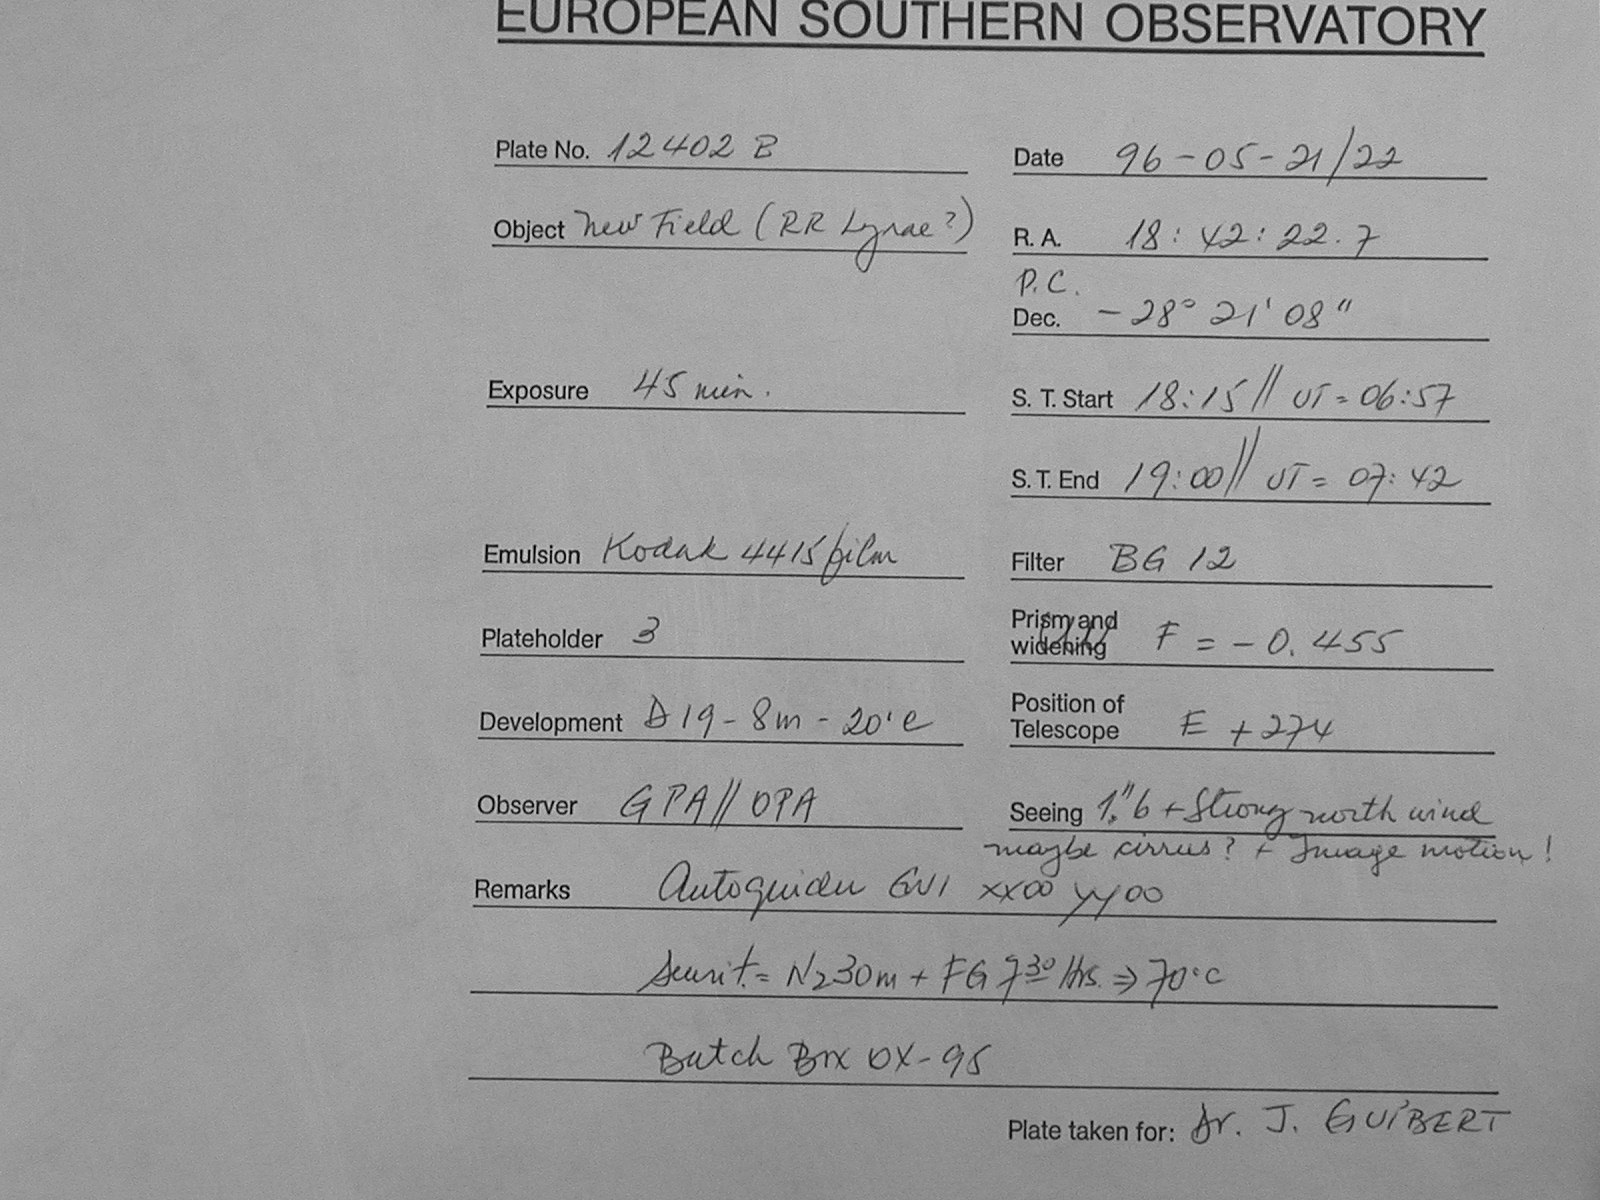 EUROPEAN SOUTHERN OBSERVATORY
Plate No. 12402 B
Date 96-05-21/22
Object New Field (RR Lyrae?)
R. A. 18:42:22.7
P.C.
Dec. -28° 21' 08"
Exposure 45 min.
S. T. Start 18:15 // UT = 06:57
S. T. End 19:00 // UT = 07:42
Emulsion Kodak 4415 film
Filter BG 12
Plateholder 3
Prism and widening F = -0.455
Development D19-8m-20°C
Position of Telescope E +274
Observer GPA // OPA
Seeing 1."6 + Strong north wind
maybe cirrus? + Image motion!
Remarks Autoguider GV1 xx00 yy00
N2 30m + FG 7 30 Hrs. ⇒ 70°C
Batch Box OX-95
Plate taken for: Dr. J. GUIBERT